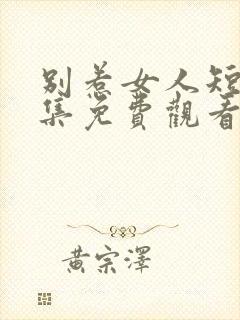 别惹女人短
集免費觀看
黃宗澤